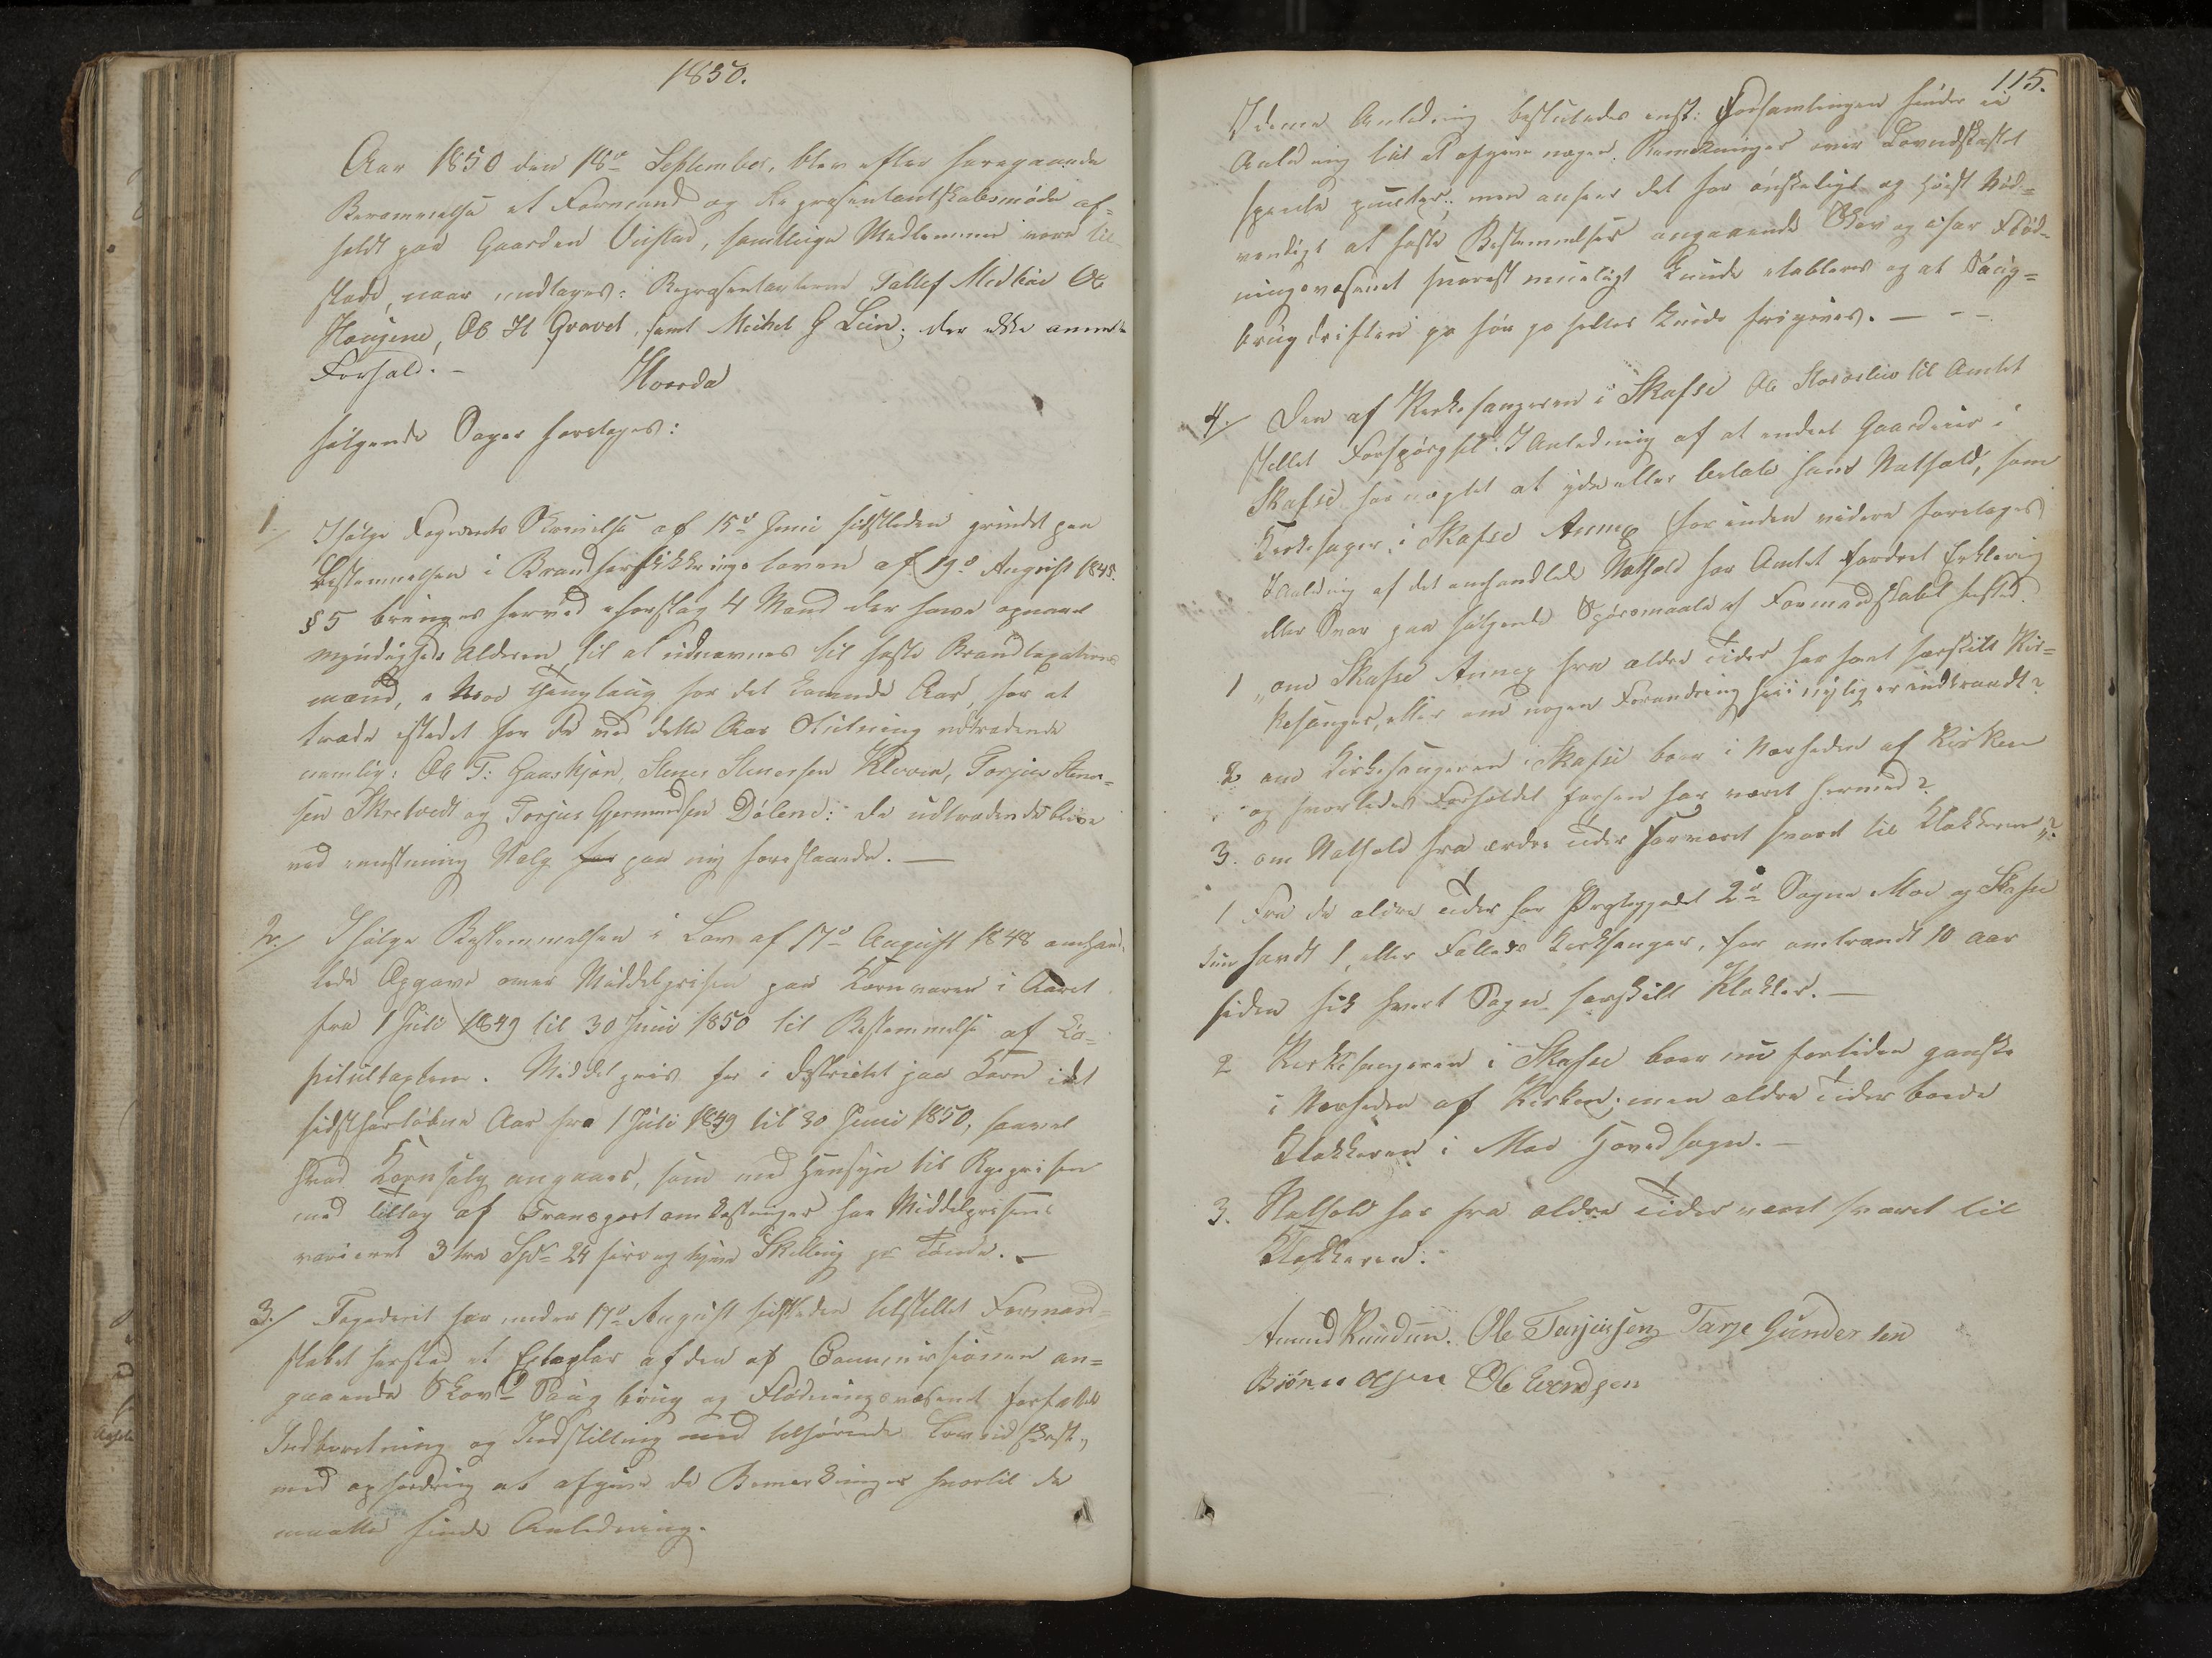 1850.
Aar 1850 den 18de September, blev efter foregaaende
Berammelse et Formand og Repræsentantskabsmøde af=
holdt paa Gaarden Vistad, samtlige Medlemmer vare til
stæde, naar undtages: Repræsentanterne Tallef Midbøe Ole
Haugene, Ole H Gravet, samt Mikel G Lien; der ikke anmeldte
Forfald. –
Hvorda
følgende Sager foretoges:
1/ Ifølge Fogderiets Skrivelse af 15de Juni sidstleden grundet paa
Bestemmelsen i Brandforsikkringsloven af 19de August 1845.
§ 5 bringes herved i forslag 4 Mænd der have opnaaet
myndigheds alderen, til at udnævnes til faste Brandtaxations
mænd, i Moe Thinglaug for det komende Aar, for at
træde istedet for de med dette Aars Slutning udtrædende
nemlig: Ole T: Gaaskjøn, Stener Stenersen Kleven, Torjus Stener=
sen Skretvedt og Torjus Gjermundsen Dølene: de udtrædende blive
ved enstemmig Valg for paa ny foreslaaede. —
2/ Ifølge Bestemmelsen i Lov af 17de August 1848 omhand
lede Opgave over Middelprisen paa Kornvarer i Aaret
fra 1 Juli 1849 til 30 Juni 1850 til Bestemmelse af Ca=
pitultaxten. Middelpris her i Distriktet paa Korn idet
sidstforløbne Aar fra 1 Juli 1849 til 30 Juni 1850, saavel
hvad Kornsalg angaaer, som med Hensyn til Rygprisen
med tillæg af Transportomkostninger har Middelprisen
varieret 3 tre Spd 24 fire og tyve Skilling pr Tønde. —
3/ Fogderiet har under 17de August sidstleden tilstillet Formand=
skabet hersted et Exlaplar af den af Commissionen an=
gaaende Skov= Saug brug og Flødningsvæsenet forfattede
Indberetning og Indstilling med tilhørende Lovudkast,
med opfordring at afgive de Bemærkninger hvortil de
maatte finde Anledning.
115.
I denne Anledning besluttedes enst: Forsamlingen finder ei
Anledning til at afgive nogen Bemærkninger over Lovudkastet
specielle puncter; men ansees det for ønskeligt og høist nød=
vendigt at faste Bestemmelser angaaende Skov og især Flød=
ningsvæsenet snarest mueligt kunde etableres og at Saug=
brugdriften jo før jo heller kunde frigives. — – –
4/ Den af Kirkesangeren i Skafse Ole Storøslie til Amtet
stellet Forspørgsel: I Anledning af at endeel Gaardeier i
Skafse har nægtet at yde eller betale hans Nathold, som
Kirkesanger i Skafse Annex (før inden videre foretages)
I Anledning af det omhandlede Nathold har Amtet fordret Erklæring
eller Svar paa følgende Spørsmaale af Formandskabet hersted.
1 „om Skafse Annex fra ældre Tider har havt særskilt Kir=
kesanger, eller om nogen Forandring heri nylig er indtraadt?
2 om Kirkesangeren i Skafse boer i Nærheden af Kirken
og hvorledes Forholdet forhen har været hermed?
3. om Nathold fra ældre Tider har været svaret til Klokkeren“?
1 Fra de ældre Tider har Præstegjeldet 2de Sogne Moe og Skafse
kun havdt 1, eller Fælleds Kirkesanger, for omtrændt 10 aar
siden fik hvert Sogn særskilt Klokker. —
2 Kirkesangeren i Skafse boer nu fortiden ganske
i Nærheden af Kirken; men ældre Tider boede
Klokkeren i Moe Hovedsogn. —
3. Nathold har fra ældre Tider været svaret til
Klokkeren.
Amund Knudsen. Ole Tarjeisen Tarje Gundersen
Biønn Olsen Ole Evendsen